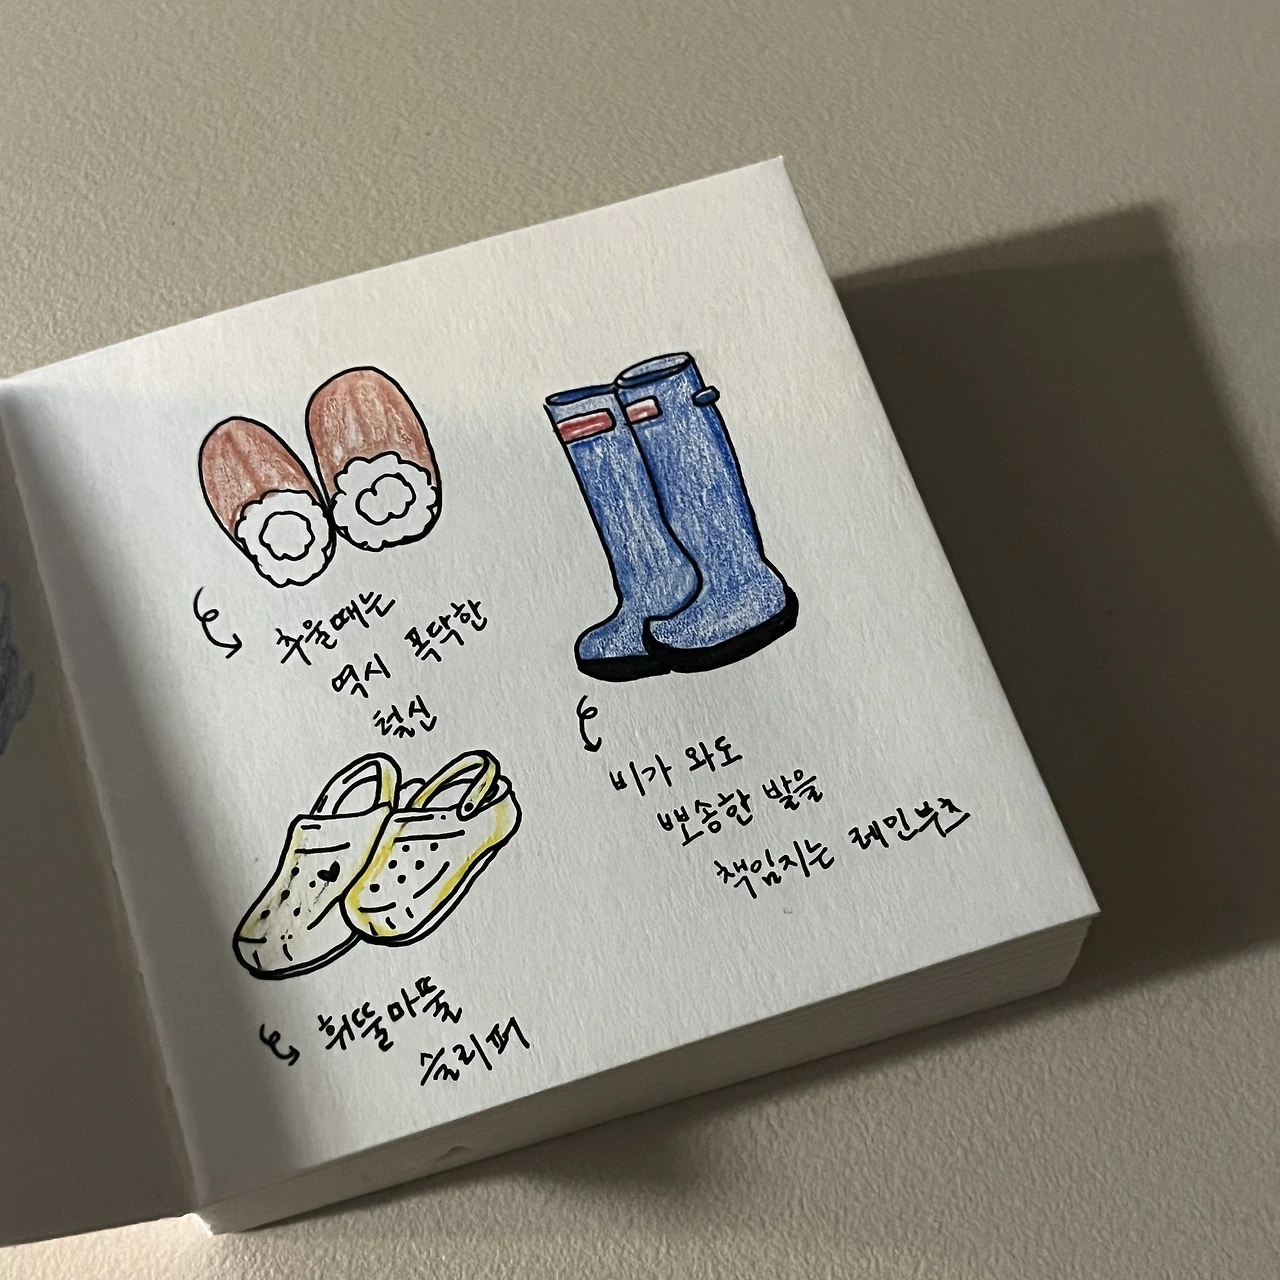 추울때는
역시 폭닥한
털신
비가 와도
뽀송한 발을
책임지는 레인부츠
휘뚤마뚤
슬리퍼